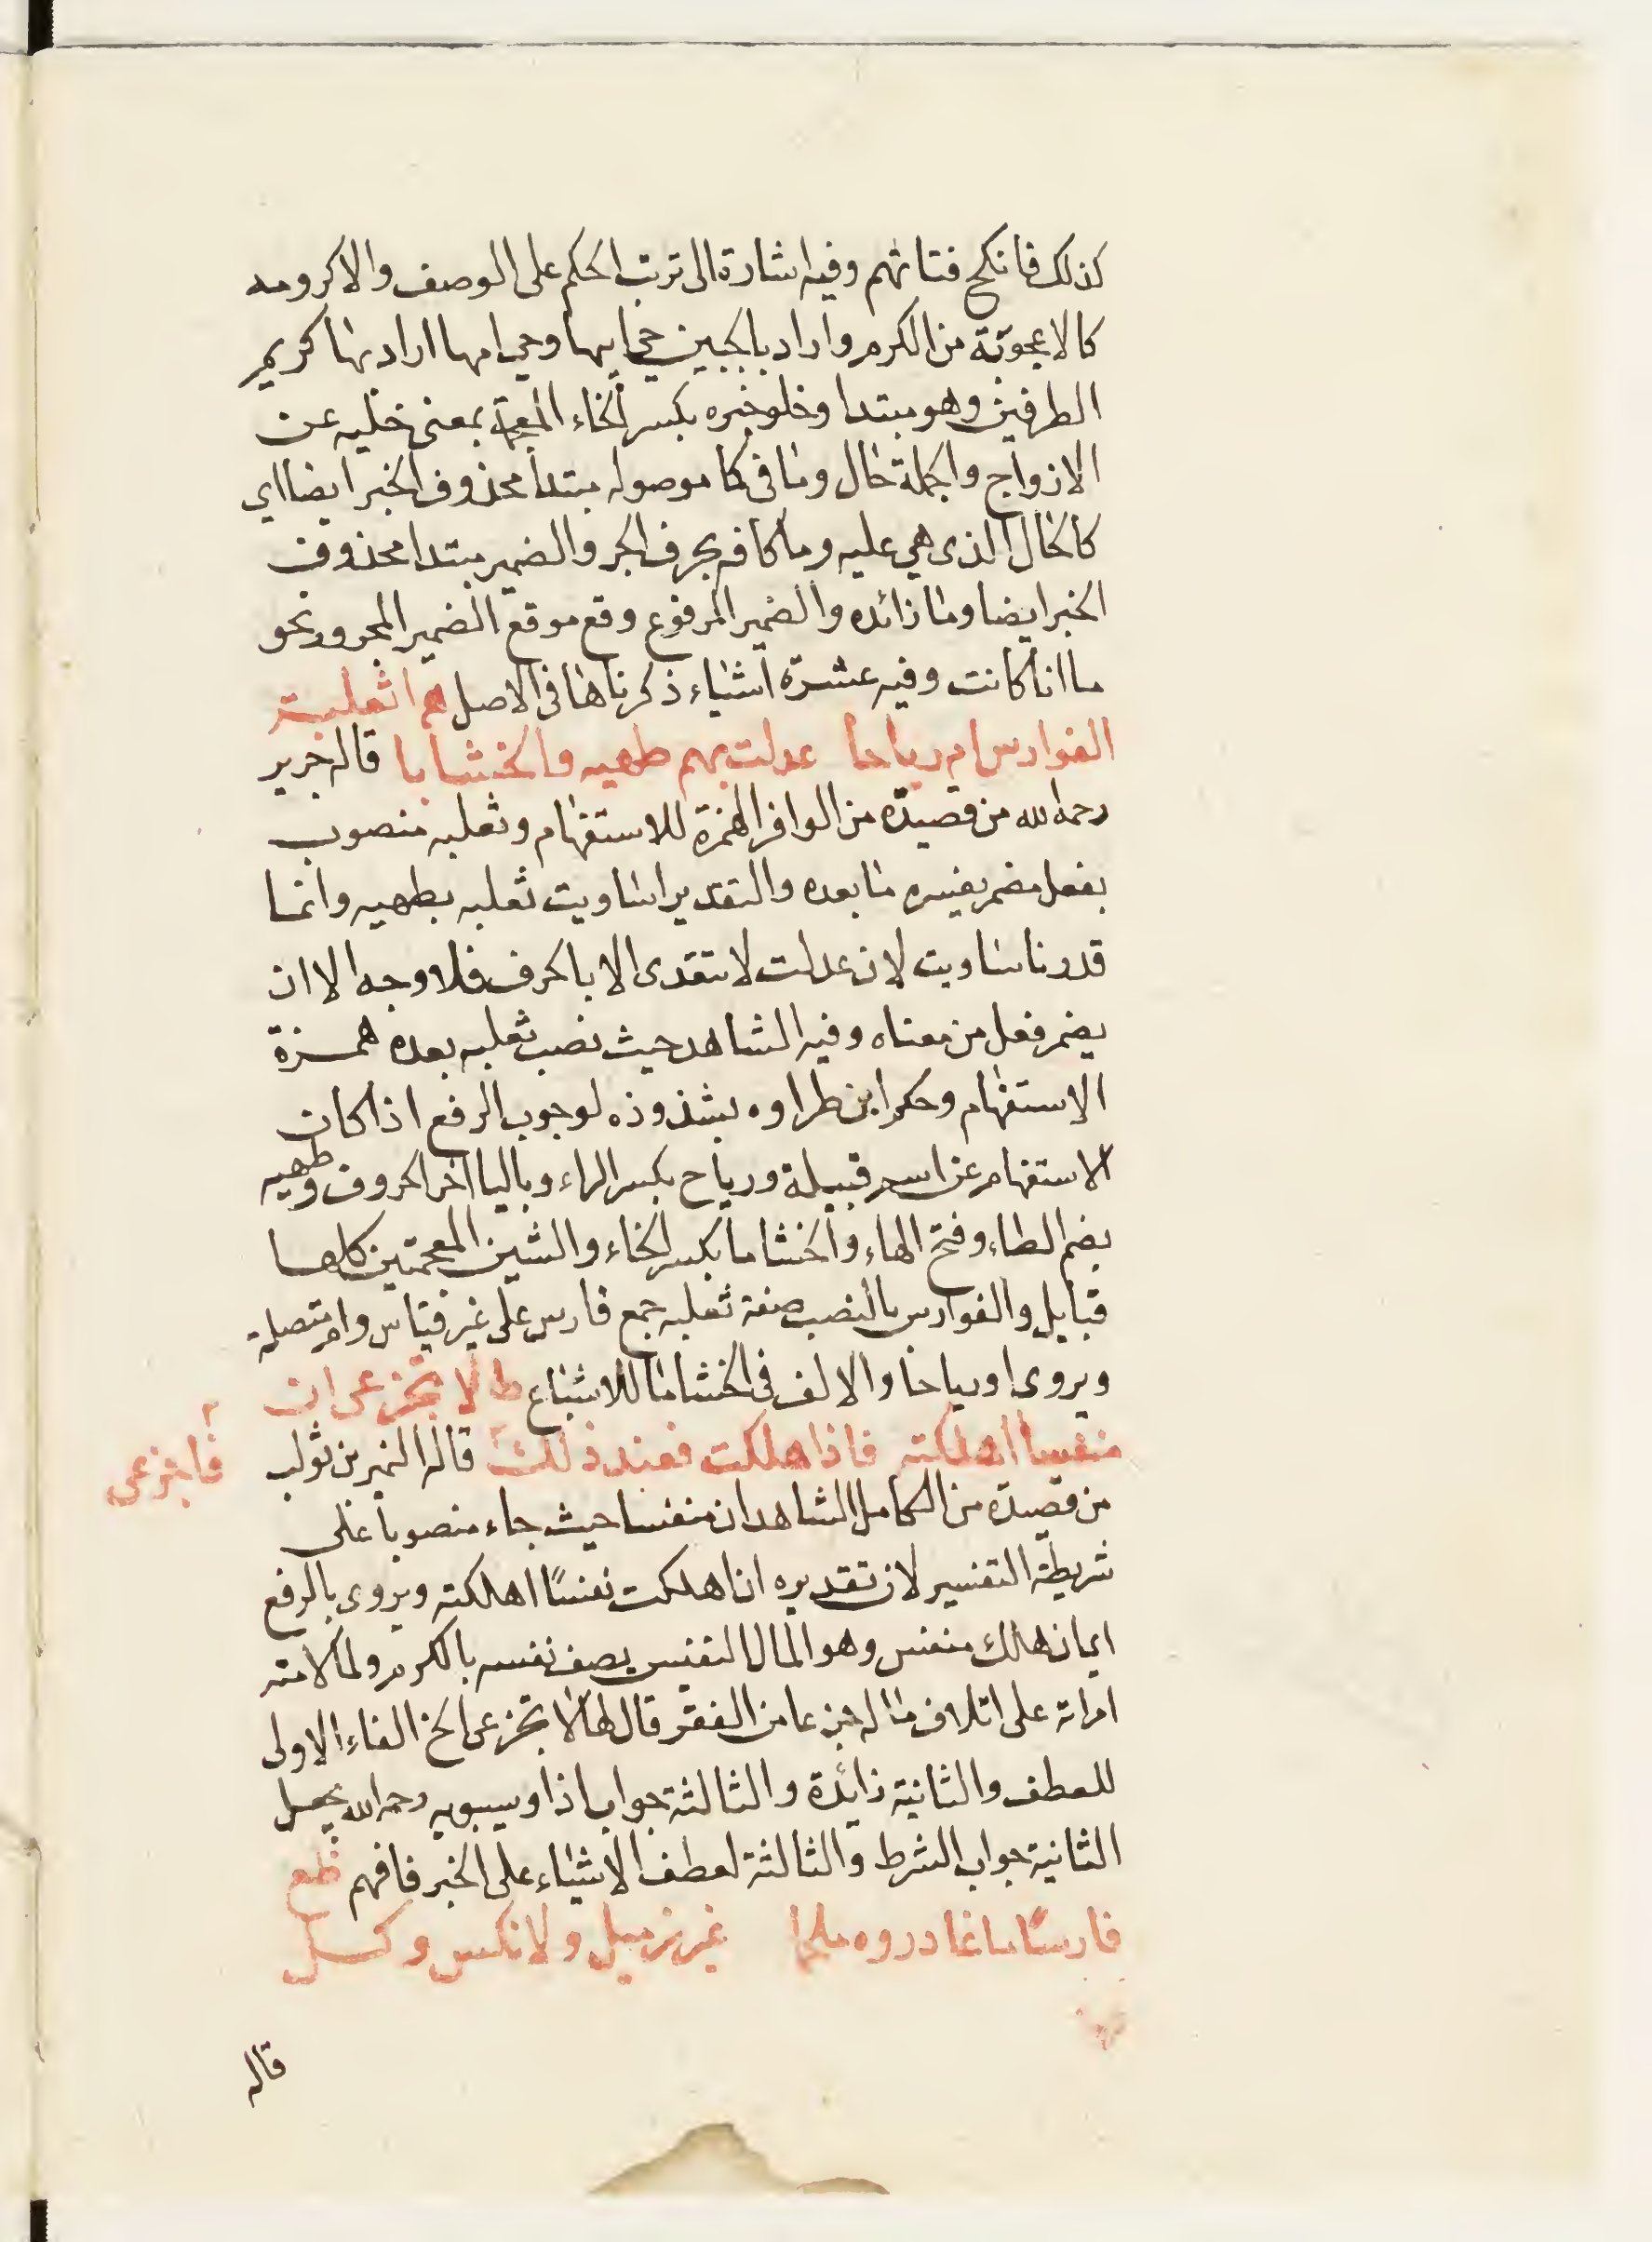 كذلك فانكح فتاتهم وفيه اشارة الى ترتب الحكم على الوصف والاكرومه
كالاعجوبة من الكرم واراد بالحيين حي ابيها وحي امها اراد بها كريم
الطرفين وهو مبتدا وخلو خبره بكسر الخاء المعجمة بمعنى خليه عن
الازواج والجملة حال وما في كا موصوله مبتدا محذوف الخبر ايضا اي
كالحال الذى هي عليه وما كافه بحرف الجر والضمير مبتدا محذوف
الخبر ايضا وما زائده والضمير المرفوع وقع موقع الضمير المجرور نحو
ما انا كانت وفيه عشرة اشياء ذكرناها في الاصل اثعلبة
الفوارس ام رياحا عدلت بهم طهيه والخشابا قاله جرير
رحمه الله من قصيدة من الوافر الهمزة للاستفهام وثعلبه منصوب
بفعل مضمر يفسره ما بعده والتقدير اساويت ثعلبه بطهيه وانما
قدرنا ساويت لان عدلت لا تتعدى الا بالحرف فلا وجه الا ان
يضمر فعل من معناه وفيه الشاهد حيث نصب ثعلبه بعده همزة
الاستفهام وحكم ابن طراوه بشذوذه لوجوب الرفع اذا كان
الاستفهام عن اسم قبيلة ورياح بكسر الراء وباليا اخر الحروف وطهيه
بضم الطاء وفتح الهاء والخشاما بكسر الخاء والشين المعجمتين كلها
قبايل والفوارس بالنصب صفة ثعلبه جمع فارس على غير قياس وام متصلة
ويروى اورياحا والالف في الخشاما للاشباع ط لا تجزعى ان
منفسا اهلكته فاذا هلكت فعند ذلك قاله النمر بن تولب
فاجزعى
من قصيدة من الكامل الشاهد ان منفسا حيث جاء منصوبا على
شريطة التفسير لان تقديره ان اهلكت نفسًا اهلكته ويروى بالرفع
اى ان هلك منفس وهو المال النفيس يصف نفسه بالكرم ولما لامته
امراته على اتلاف ماله جزعا من الفقر قال لها لا تجزعى الخ الفاء الاولى
للعطف والثانية زائدة والثالثة جواب اذا وسيبويه رحمه الله يجعل
الثانية جواب الشرط والثالثة لعطف الاشياء على الخبر فافهم
فارسًا ما غادروه ملحما غير زميل ولا نكس وكسل
قاله